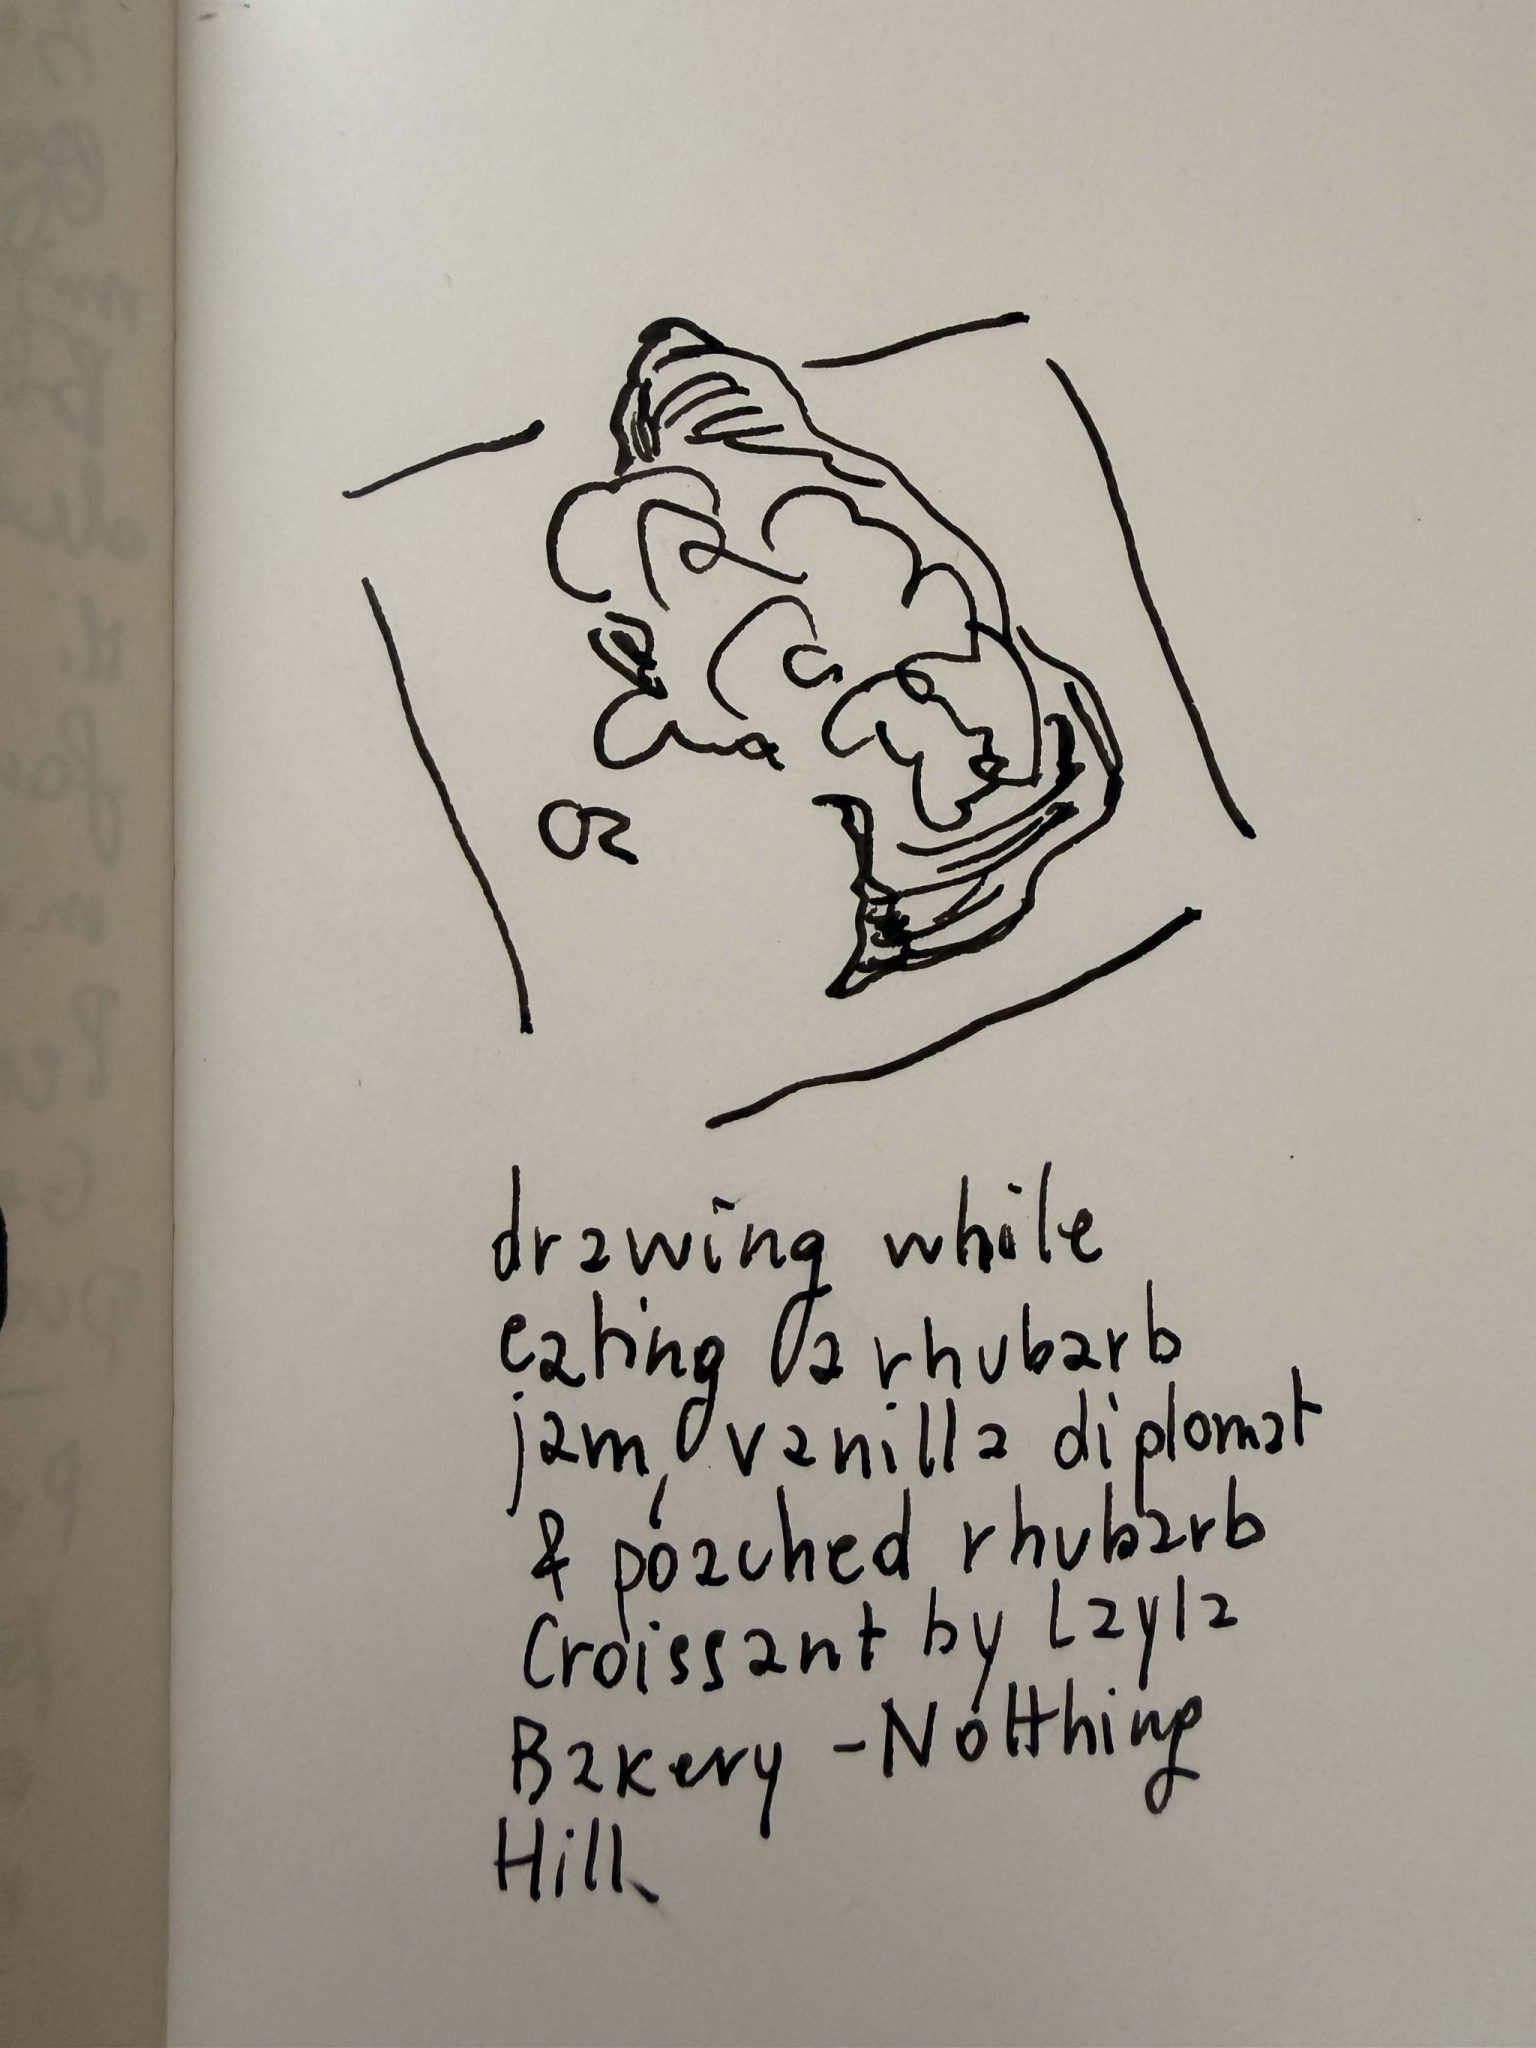 drawing while
eating a rhubarb
jam, vanilla diplomat
& poached rhubarb
Croissant by Layla
Bakery - Notthing
Hill